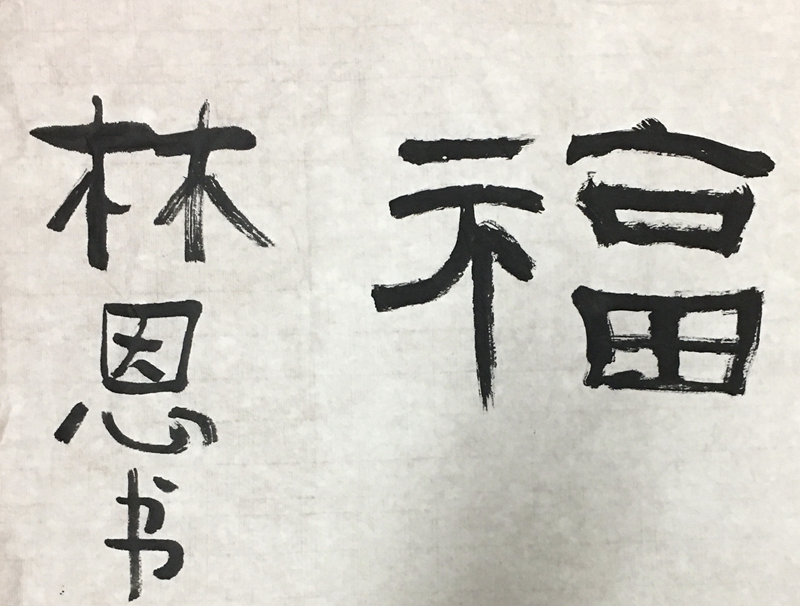 福
林恩书